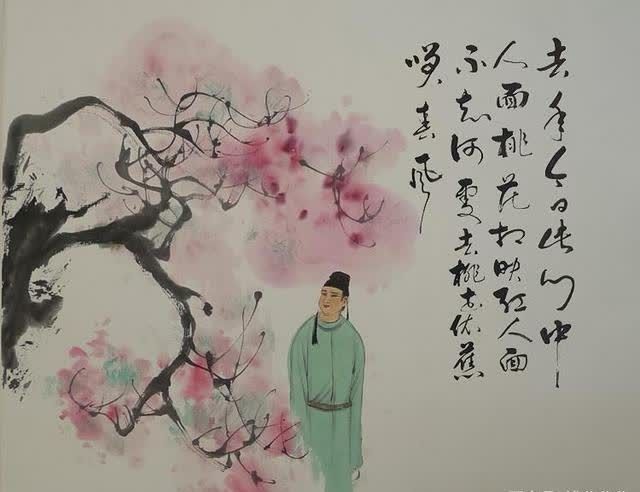 去年今日此门中
人面桃花相映红人面
不知何处去桃花依舊
笑春风